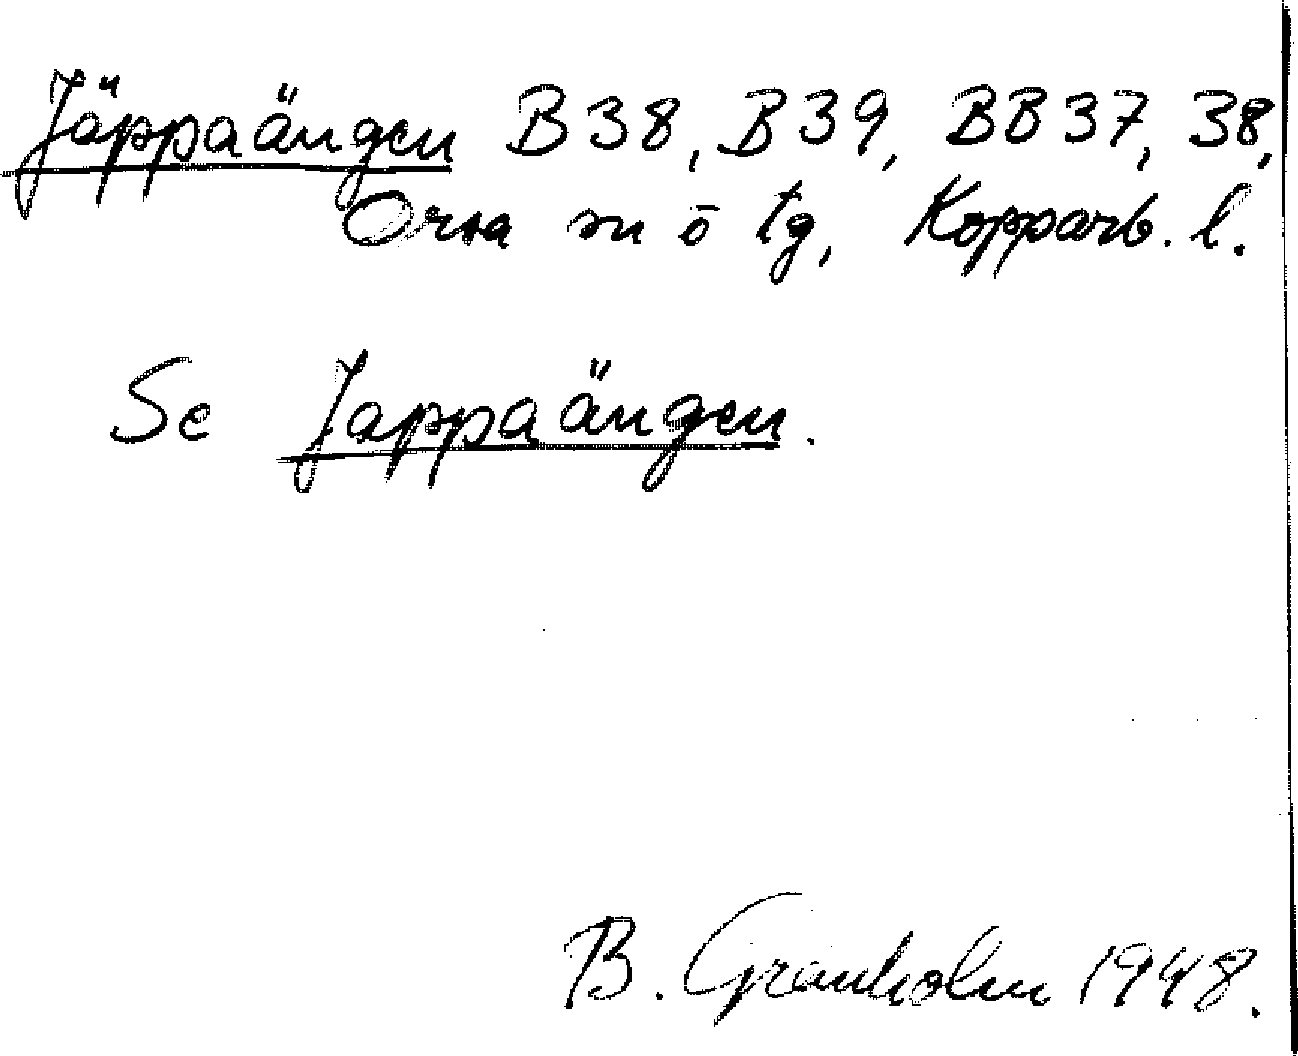 Jäppaängen B38, B39, BB37, 38,
Orsa sn ō tg, Kopparb. l.
Se Jappaängen.
B. Granholm 1948.